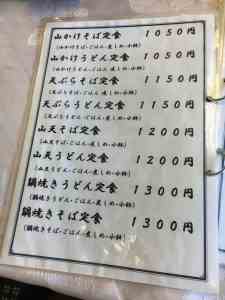 山かけそば定食 1050円
(山かけそば・ごはん・煮しめ・小鉢)
山かけうどん定食 1050円
(山かけうどん・ごはん・煮しめ・小鉢)
天ぷらそば定食 1150円
(天ぷらそば・ごはん・煮しめ・小鉢)
天ぷらうどん定食 1150円
(天ぷらうどん・ごはん・煮しめ・小鉢)
山天そば定食 1200円
(山天そば・ごはん・煮しめ・小鉢)
山天うどん定食 1200円
(山天うどん・ごはん・煮しめ・小鉢)
鍋焼きうどん定食 1300円
(鍋焼きうどん・ごはん・煮しめ・小鉢)
鍋焼きそば定食 1300円
(鍋焼きそば・ごはん・煮しめ・小鉢)